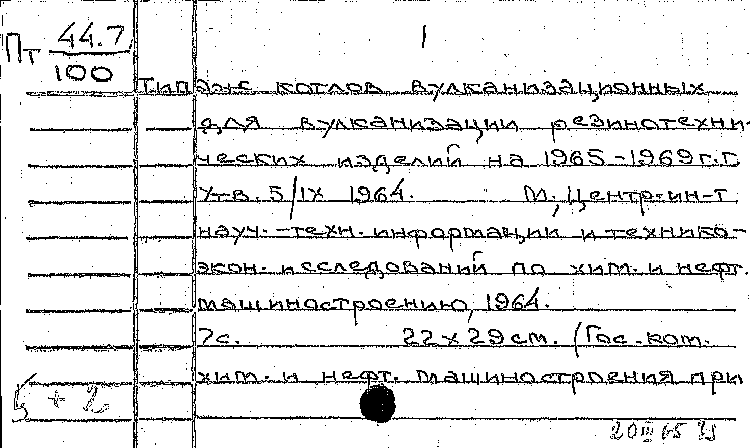 Пт 44.7/100
1
Типаж котлов вулканизационных
для вулканизации резинотехни-
ческих изделий на 1965-1969г.г.
Утв. 5/IX 1964. М., Центр. ин-т
науч.-техн. информации и технико-
экон. исследований по хим. и нефт.
машиностроению, 1964.
7с. 22 x 29 см. (Гос. ком.
хим. и нефт. машиностроения при
5 + 2
20 III 65